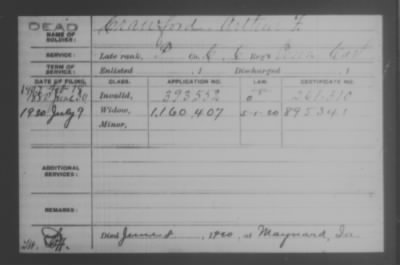 DEAD
NAME OF SOLDIER: Crawford
SERVICE: Late rank, P Co. C Reg't
TERM OF SERVICE: Enlisted , 1 Discharged , 1
DATE OF FILING. CLASS. APPLICATION NO. LAW. CERTIFICATE NO.
Invalid, 393552
1920 July 9 Widow, 1,160,407 5-1-20 895341
Minor,
ADDITIONAL SERVICES:
REMARKS:
Died June 8, 1920, at Maynard, Ia